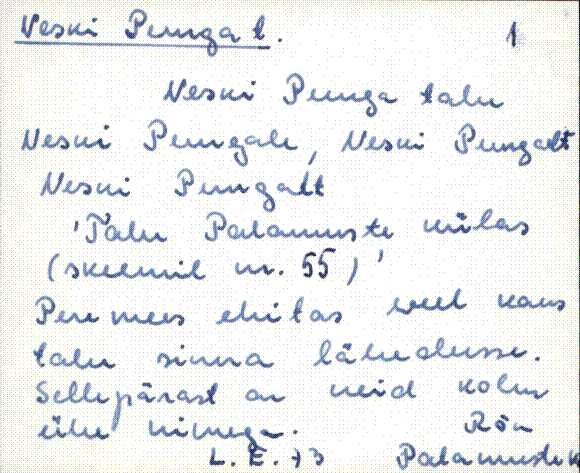 Veski Punga t. 1
Veski Punga talu
Veski Pungale, Veski Pungalt
Veski Pungalt
'Talu Palamuste külas
(skeemil nr. 55)'
Peremees ehitas veel kaks
talu sinna lähedusse.
Sellepärast on neid kolm
ühe nimega. Rõn
L. E. 73 Palamuste k